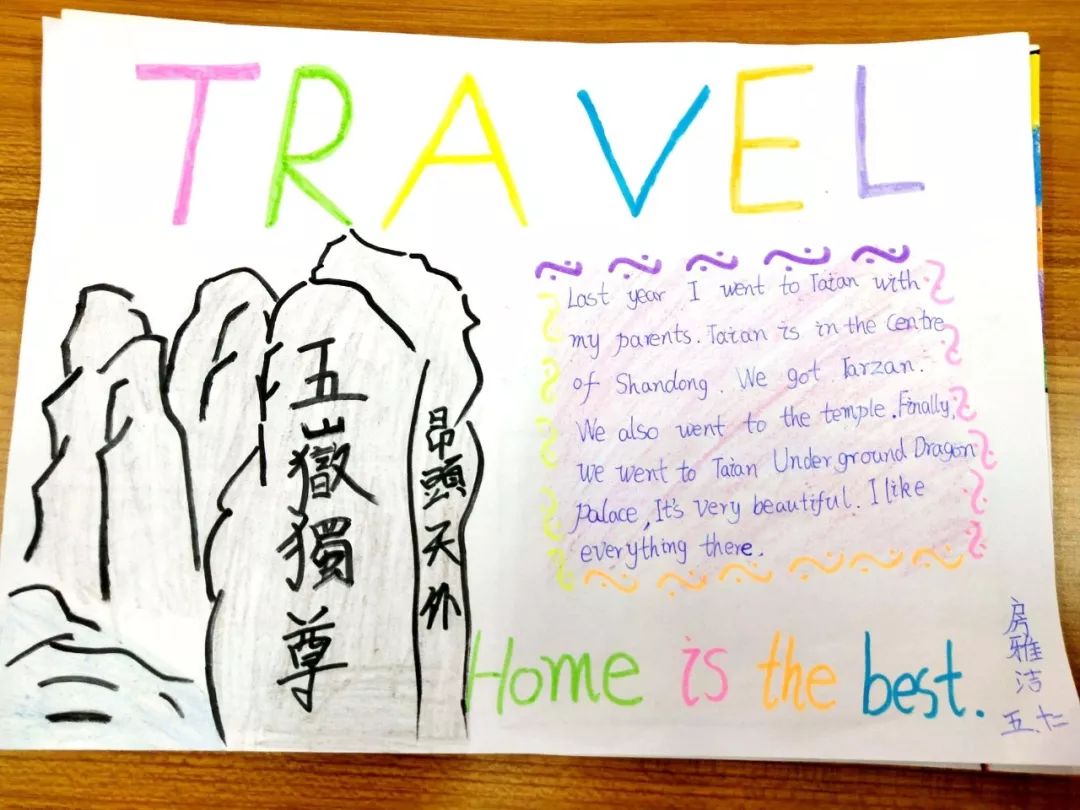 TRAVEL
五嶽獨尊
昂頭天外
Last year I went to Taian with
my parents. Taian is in the Centre
of Shandong. We got Tarzan.
We also went to the temple. Finally,
we went to Taian Underground Dragon
palace, It's very beautiful. I like
everything there.
Home is the best.
房雅洁
五.十二